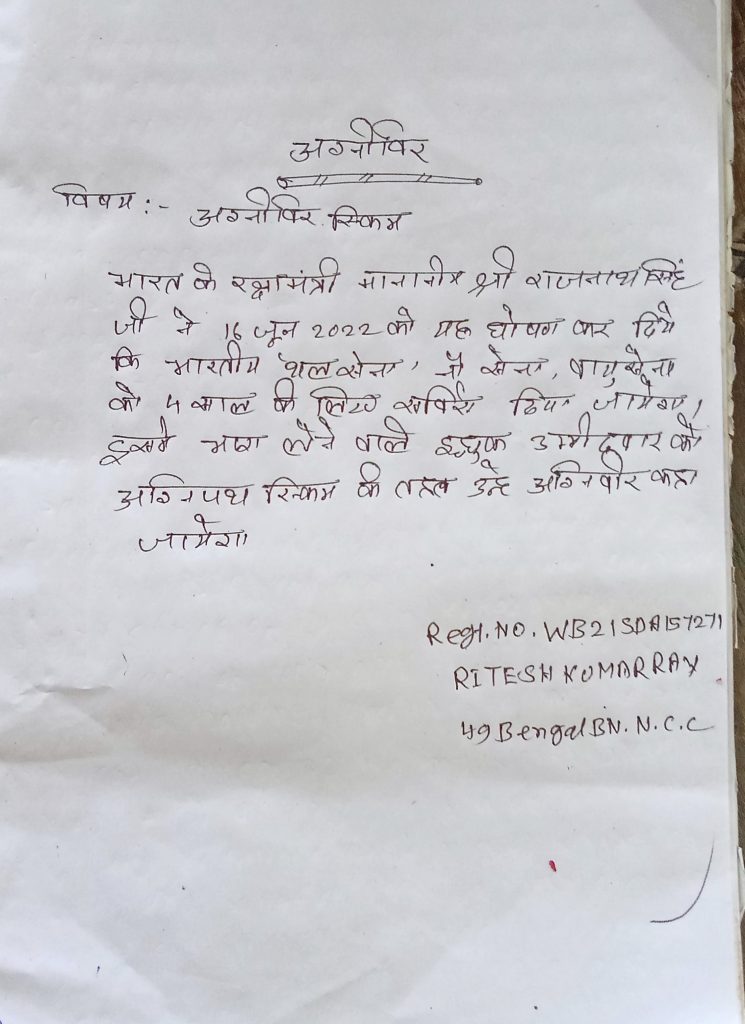 अग्नीविर
विषय :- अग्नीविर स्किम
भारत के रक्षामंत्री मानानीय श्री राजनाथ सिंह
जी ने 16 जून 2022 को यह घोषणा कर दिये
कि भारतीय थल सेना, नौ सेना, वायु सेना
को 4 साल के लिए सर्विस दिया जायेगा,
इसमे भाग लेने वाले इच्छुक उम्मीदवार को
अग्निपथ स्किम के तहत उन्हे अग्निवीर कहा
जायेगा
Regt. NO. WB21SDA157271
RITESH KUMAR RAY
49 Bengal BN. N.C.C